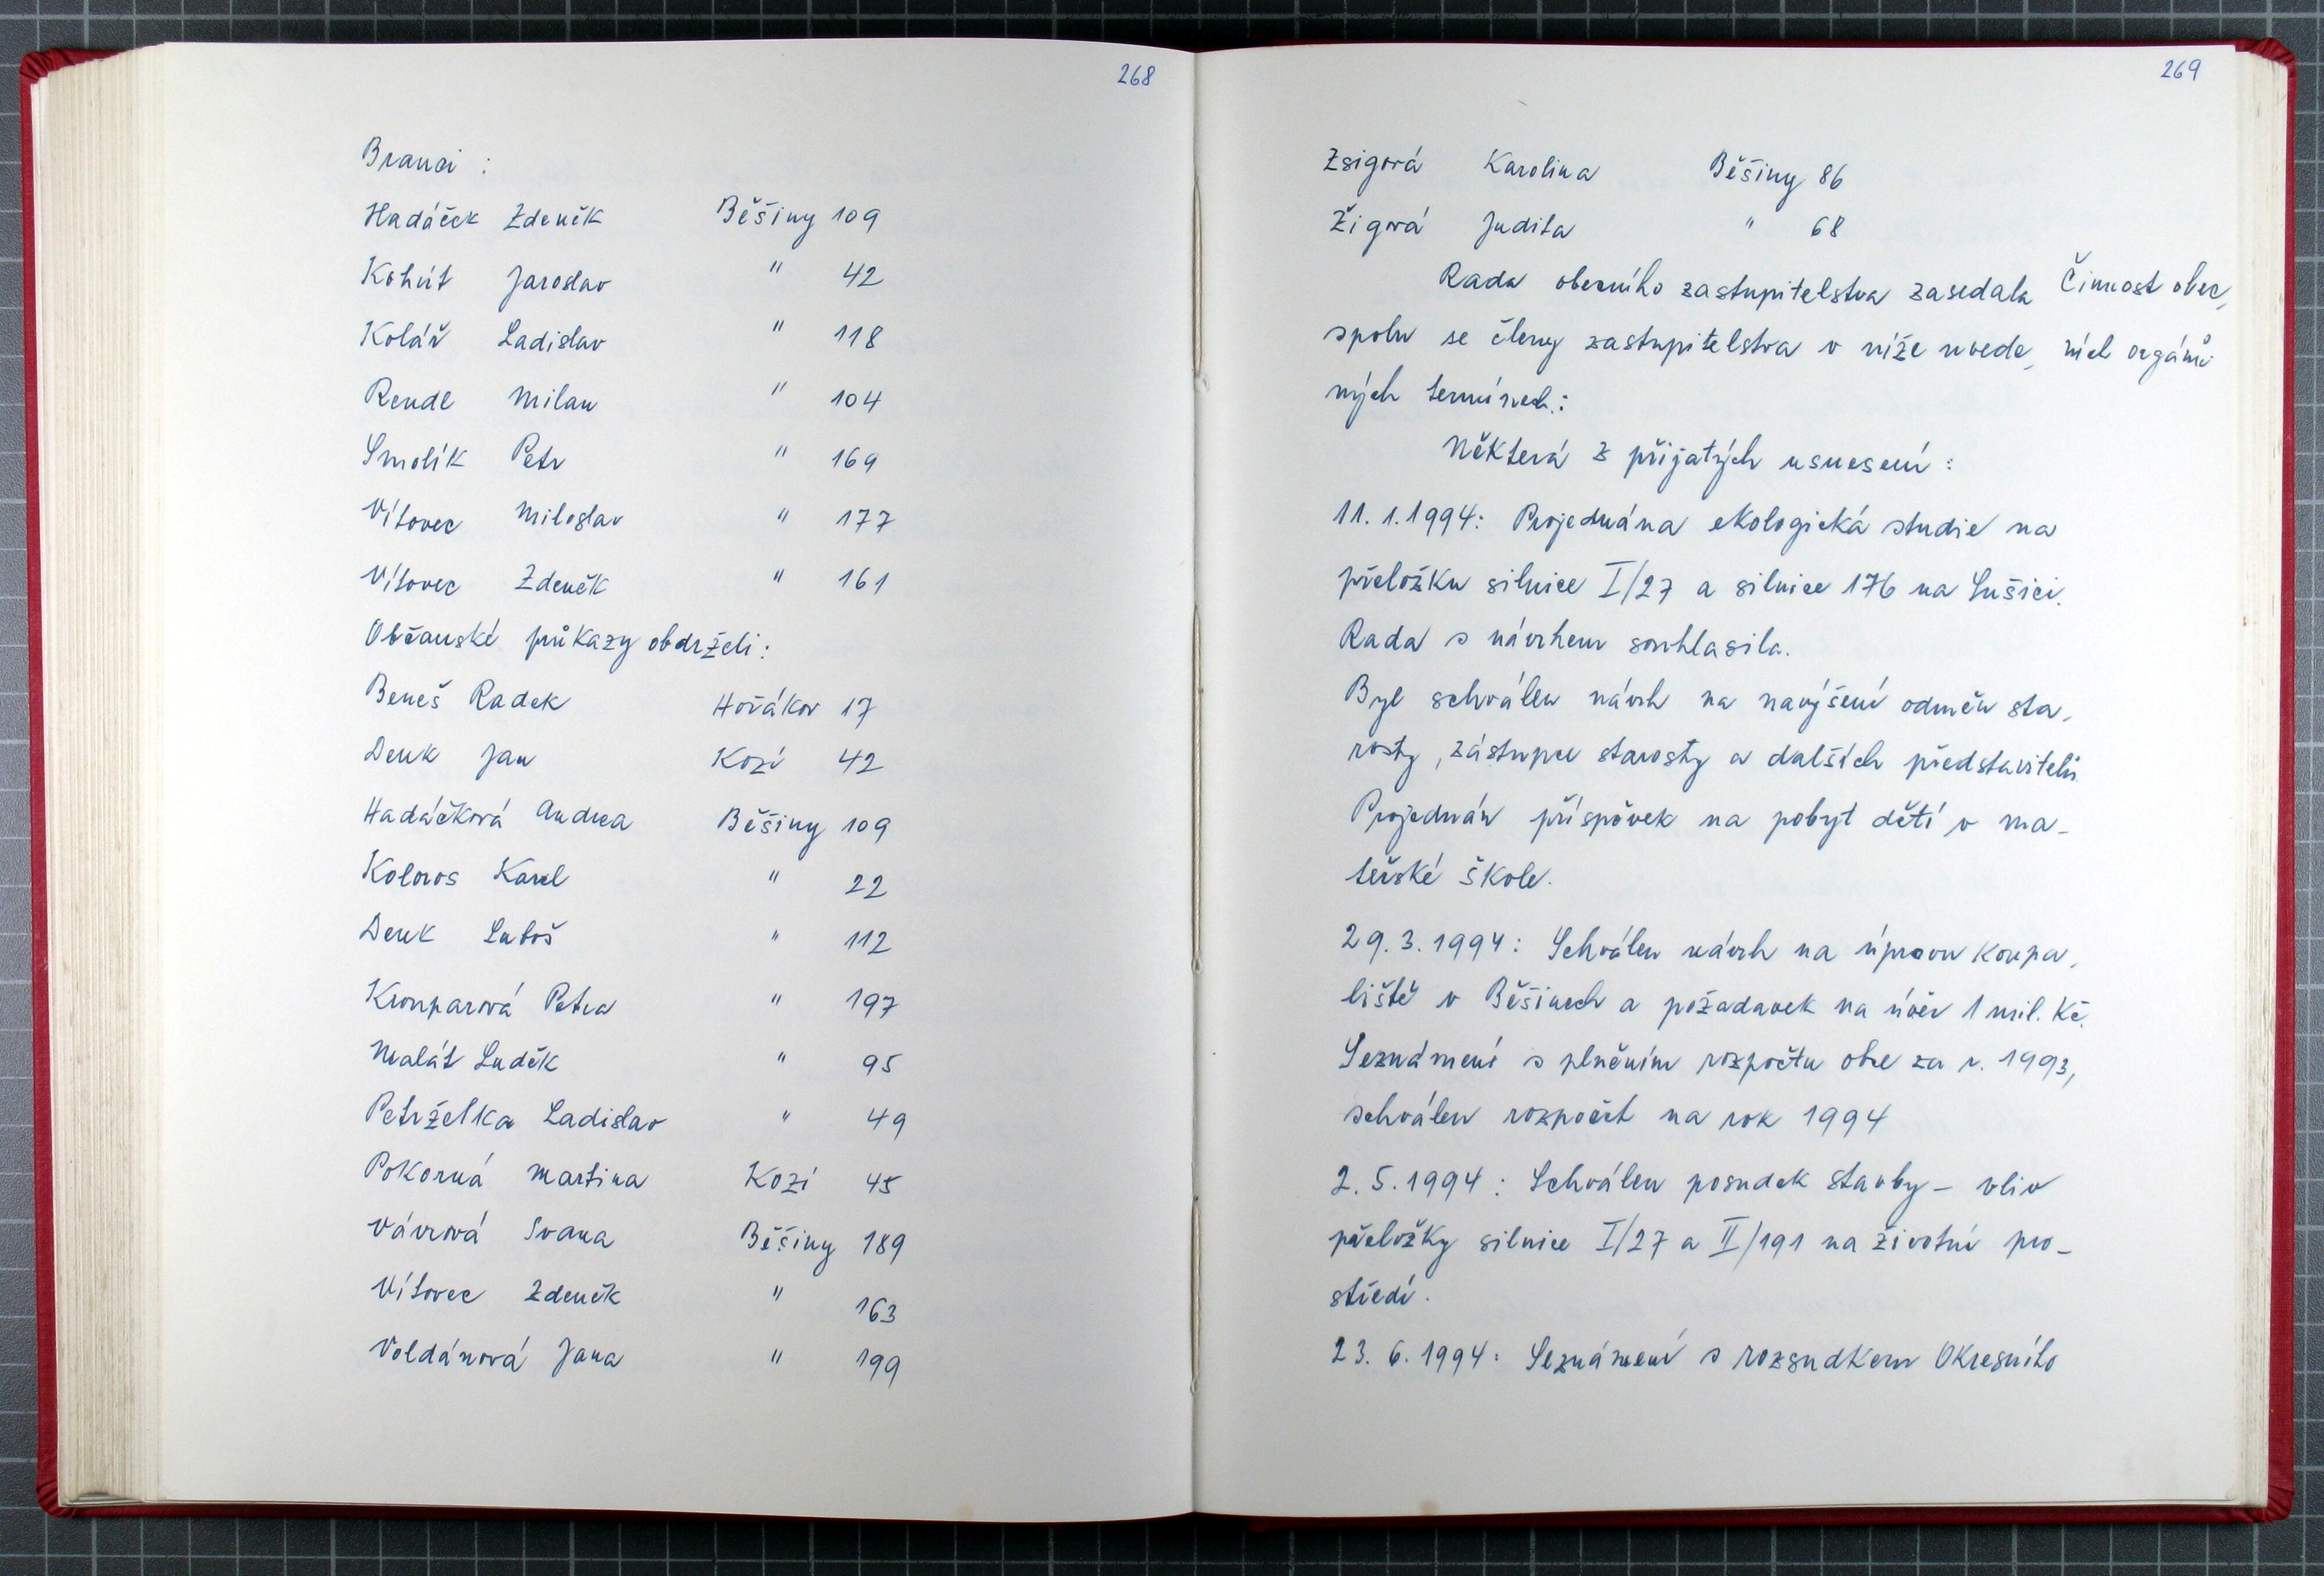 268
Branci :
Hadáček Zdeněk Běšiny 109
Kohút Jaroslav " 42
Kolář Ladislav " 118
Rendl Milan " 104
Smolík Petr " 169
Vítovec Miloslav " 177
Vítovec Zdeněk " 161
Občanské průkazy obdrželi:
Beneš Radek Hořákov 17
Denk Jan Kozí 42
Hadáčková Andrea Běšiny 109
Koloros Karel " 22
Denk Luboš " 112
Krouparová Petra " 197
Malát Luděk " 95
Petrželka Ladislav " 49
Pokorná Martina Kozí 45
Vávrová Ivana Běšiny 189
Vítovec Zdeněk " 163
Voldánová Jana " 199
269
Zsigová Karolina Běšiny 86
Žigová Judita " 68
Rada obecního zastupitelstva zasedala
spolu se členy zastupitelstva v níže uvede-
ných termínech:
Činnost obec-
ních orgánů
Některá z přijatých usnesení:
11. 1. 1994: Projednána ekologická studie na
přeložku silnice I/27 a silnice 176 na Sušici.
Rada s návrhem souhlasila.
Byl schválen návrh na navýšení odměn sta-
rosty, zástupce starosty a dalších představitelů
Projednán příspěvek na pobyt dětí v ma-
teřské škole.
29. 3. 1994: Schválen návrh na úpravu koupa-
liště v Běšinech a požadavek na úvěr 1 mil. Kč.
Seznámení s plněním rozpočtu obce za r. 1993,
schválen rozpočet na rok 1994
2. 5. 1994: Schválen posudek stavby - vliv
přeložky silnice I/27 a II/191 na životní pro-
středí.
23. 6. 1994: Seznámení s rozsudkem Okresního